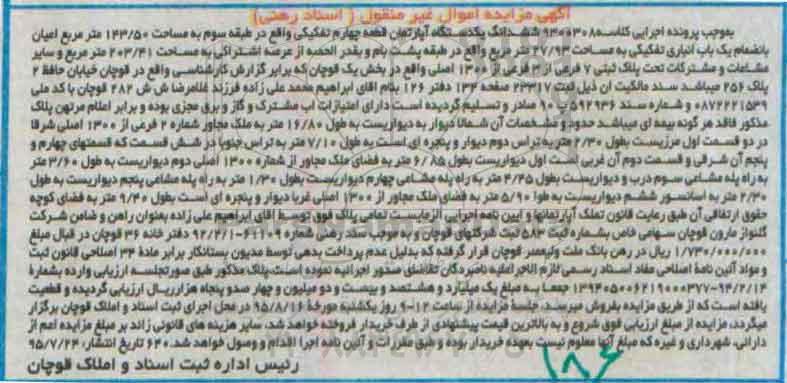 آگهی مزایده اموال غیر منقول ( اسناد رهنی)
بموجب پرونده اجرایی کلاسه ۹۳۰۰۳۰۸ ششدانگ یکدستگاه آپارتمان قطعه چهارم تفکیکی واقع در طبقه سوم به مساحت ۱۴۳/۵۰ متر مربع اعیان
بانضمام یک باب انباری تفکیکی به مساحت ۲۷/۹۳ متر مربع واقع در طبقه پشت بام و بقدر الحصه از عرصه اشتراکی به مساحت ۲۰۳/۴۱ متر مربع و سایر
مشاعات و مشترکات تحت پلاک ثبتی ۷ فرعی از ۲ فرعی از ۱۳۰۰ اصلی واقع در بخش یک قوچان که برابر گزارش کارشناسی واقع در قوچان خیابان حافظ ۲
پلاک ۲۵۶ میباشد سند مالکیت آن ذیل ثبت ۲۳۳۱۷ صفحه ۱۳۴ دفتر ۱۲۶ بنام آقای ابراهیم محمد علی زاده فرزند غلامرضا ش ش ۲۸۲ قوچان با کد ملی
۰۸۷۲۲۲۱۵۳۹ و شماره سند ۵۹۲۹۳۶ ب ۹۰ صادر و تسلیم گردیده است دارای امتیازات آب مشترک و گاز و برق مجزی بوده و برابر اعلام مرتهن پلاک
مذکور فاقد هر گونه بیمه ای میباشد حدود و مشخصات آن شمالا دیوار به دیواریست به طول ۱۶/۸۰ متر به ملک مجاور شماره ۲ فرعی از ۱۳۰۰ اصلی شرقا
در دو قسمت اول مرزیست بطول ۲/۳۰ متر به تراس دوم دیوار و پنجره ای است به طول ۷/۱۰ متر به تراس جنوبا در شش قسمت که قسمتهای چهارم و
پنجم آن شرقی و قسمت دوم آن غربی است اول دیواریست بطول ۶/۸۵ متر به فضای ملک مجاور از شماره ۱۳۰۰ اصلی دوم دیواریست به طول ۳/۶۰ متر
به راه پله مشاعی سوم درب و دیواریست بطول ۴/۴۵ متر به راه پله مشاعی چهارم دیواریست بطول ۱/۳۰ متر به راه پله مشاعی پنجم دیواریست به طول
۲/۳۰ متر به آسانسور ششم دیواریست به طول ۵/۹۰ متر به فضای ملک مجاور از ۱۳۰۰ اصلی غربا دیوار و پنجره ای است بطول ۹/۴۰ متر به فضای کوچه
حقوق ارتفاقی آن طبق رعایت قانون تملک آپارتمانها و آیین نامه اجرایی آلزمایست تمامی پلاک فوق توسط آقای ابراهیم علی زاده بعنوان راهن و ضامن شرکت
گلنواز مارون قوچان سهامی خاص بشماره ثبت ۵۸۳ ثبت شرکتهای قوچان و به موجب سند رهنی شماره ۶۱۱۰۹-۹۲/۴/۱ دفتر خانه ۳۶ قوچان در قبال مبلغ
۱/۷۳۰/۰۰۰/۰۰۰ ریال در رهن بانک ملت ولیعصر قوچان قرار گرفته که بدلیل عدم پرداخت بدهی توسط مدیون بستانکار برابر مادۀ ۳۴ اصلاحی قانون ثبت
و مواد آئین نامۀ اصلاحی مفاد اسناد رسمی لازم الاجرا علیه نامبردگان تقاضای صدور اجرائیه نموده است. پلاک مذکور طبق صورتجلسه ارزیابی وارده بشمارۀ
۱۳۹۴۰۵۰۰۶۲۱۹۰۰۰۳۷۷-۹۴/۲/۱۴ جمعا به مبلغ یک میلیارد و هشتصد و بیست و دو میلیون و چهار صدو پنجاه هزارریال ارزیابی گردیده و قطعیت
یافته است که از طریق مزایده بفروش میرسد. جلسۀ مزایده از ساعت ۱۲-۹ روز یکشنبه مورخۀ ۹۵/۸/۱۶ در محل اجرای ثبت اسناد و املاک قوچان برگزار
میگردد. مزایده از مبلغ ارزیابی فوق شروع و به بالاترین قیمت پیشنهادی از طرف خریدار فروخته خواهد شد، سایر هزینه های قانونی زائد بر مبلغ مزایده اعم از
دارائی، شهرداری و غیره که مبلغ آنها معلوم نیست بعهده خریدار بوده و طبق مقررات و آئین نامه اجرا اقدام و وصول خواهد شد. ۶۴۰ تاریخ انتشار: ۹۵/۷/۲۴
رئیس اداره ثبت اسناد و املاک قوچان
۱۸۶